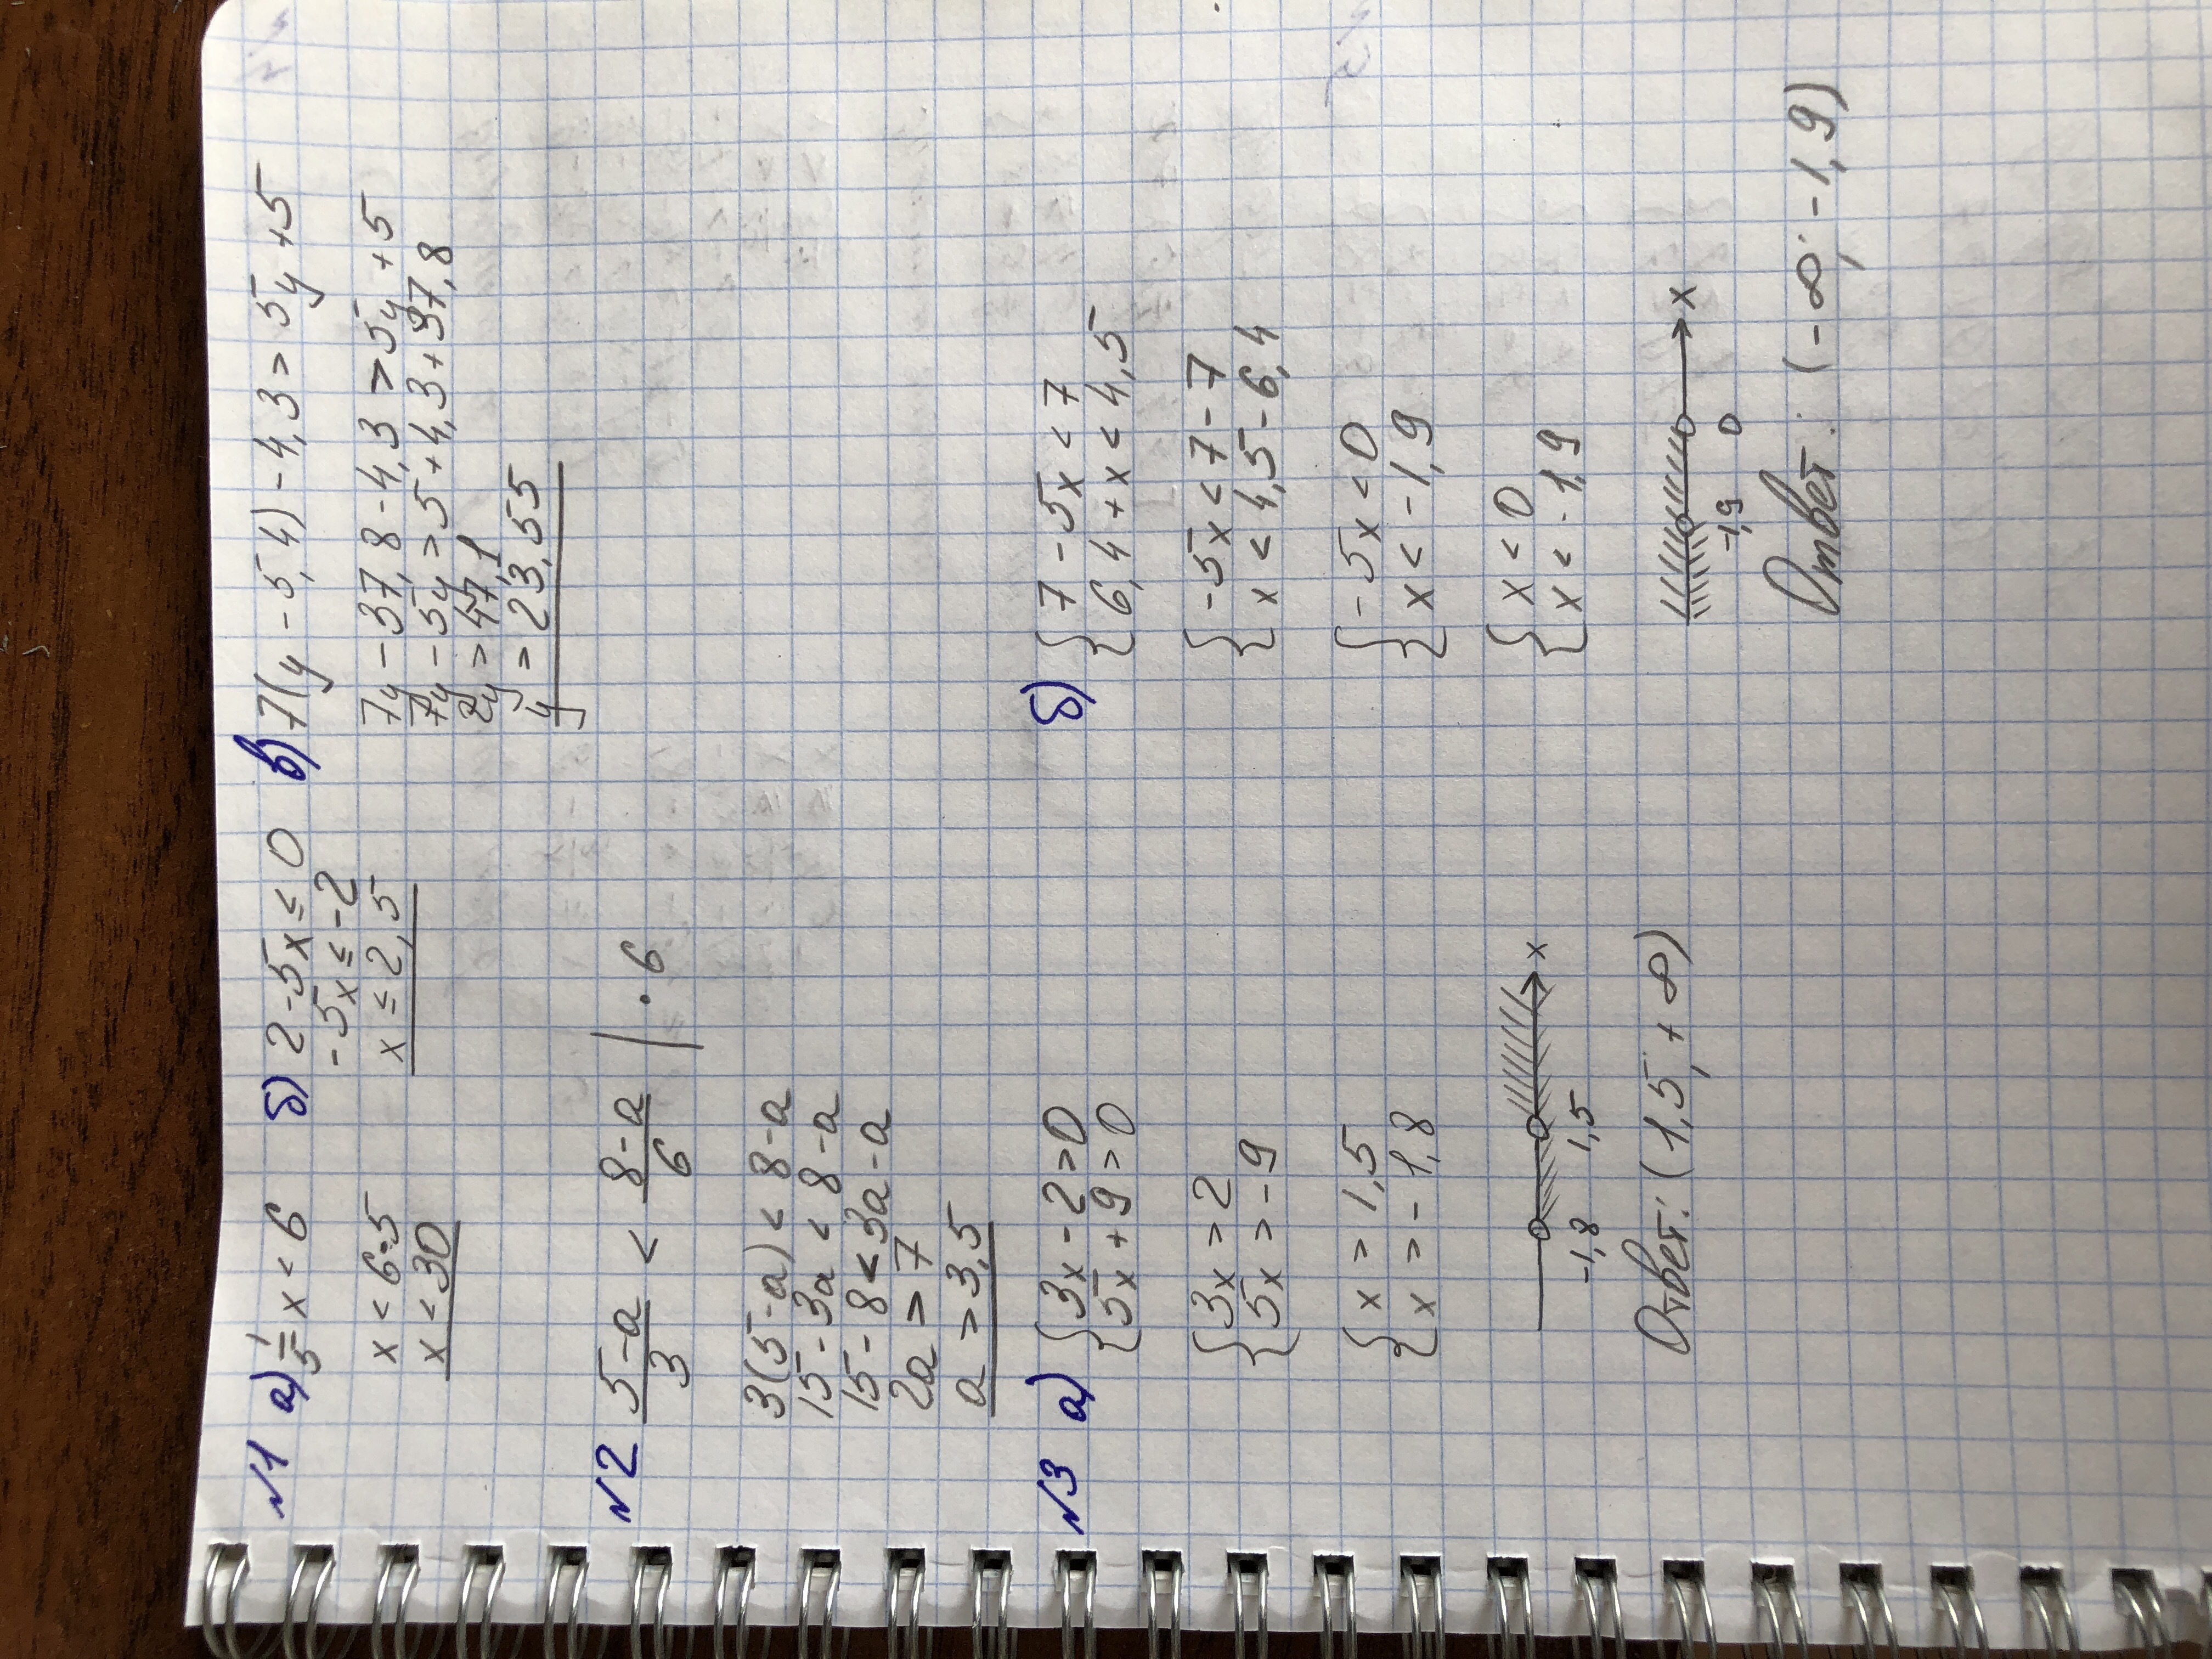 №1 а) 1/5 x < 6
x < 6·5
x < 30
б) 2 - 5x ≤ 0
-5x ≤ -2
x ≤ 2,5
в) 7(y - 5,4) - 4,3 > 5y + 5
7y - 37,8 - 4,3 > 5y + 5
7y - 5y > 5 + 4,3 + 37,8
2y > 47,1
y > 23,55
№2 5-a/3 < 8-a/6 | · 6
3(5-a) < 8-a
15 - 3a < 8-a
15 - 8 < 3a - a
2a > 7
a > 3,5
№3 а) { 3x - 2 > 0
5x + 9 > 0
{ 3x > 2
5x > -9
{ x > 1,5
x > -1,8
x
-1,8 1,5
Ответ: (1,5; +∞)
б) { 7 - 5x < 7
6,4 + x < 4,5
{ -5x < 7 - 7
x < 4,5 - 6,4
{ -5x < 0
x < -1,9
{ x < 0
x < -1,9
x
-1,9 0
Ответ: (-∞; -1,9)